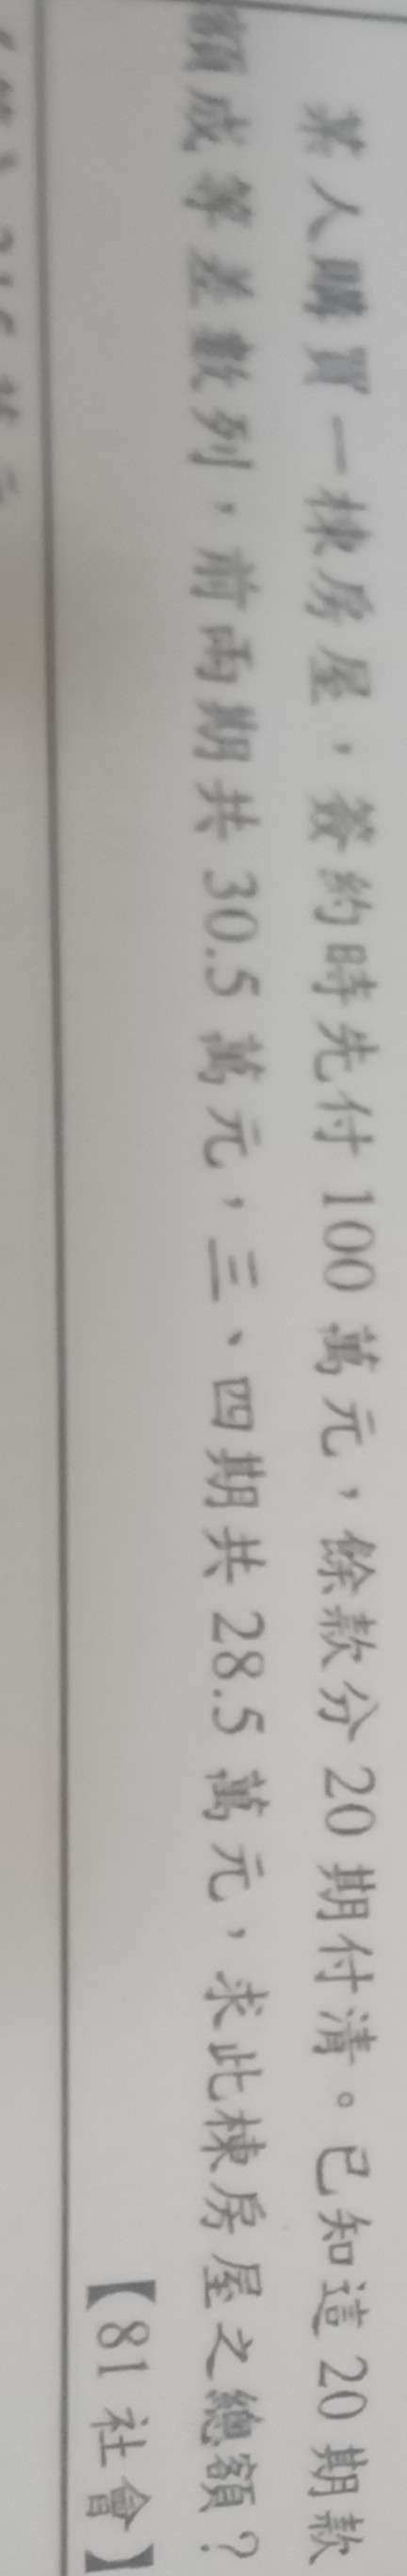 某人購買一棟房屋，簽約時先付 100 萬元，餘款分 20 期付清。已知這 20 期款
額成等差數列，前兩期共 30.5 萬元，三、四期共 28.5 萬元，求此棟房屋之總額？
【81 社會】